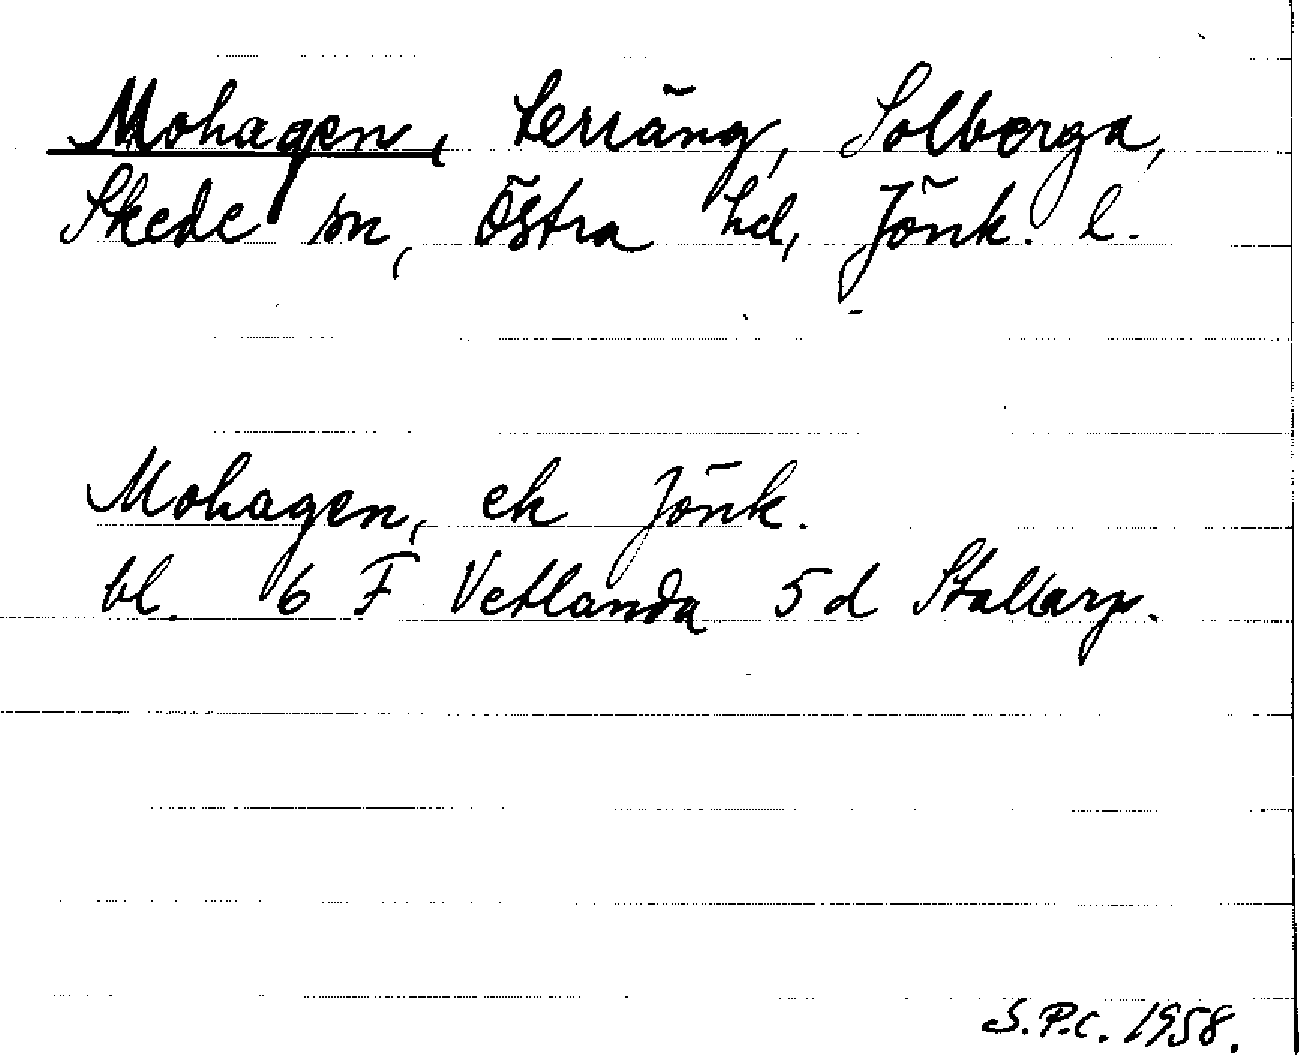 Mohagen, terräng, Solberga,
Skede sn, Östra hd, Jönk. l.
Mohagen, ek Jönk.
bl. 6 F Vetlanda 5 d Stallarp.
S.P.C. 1958.